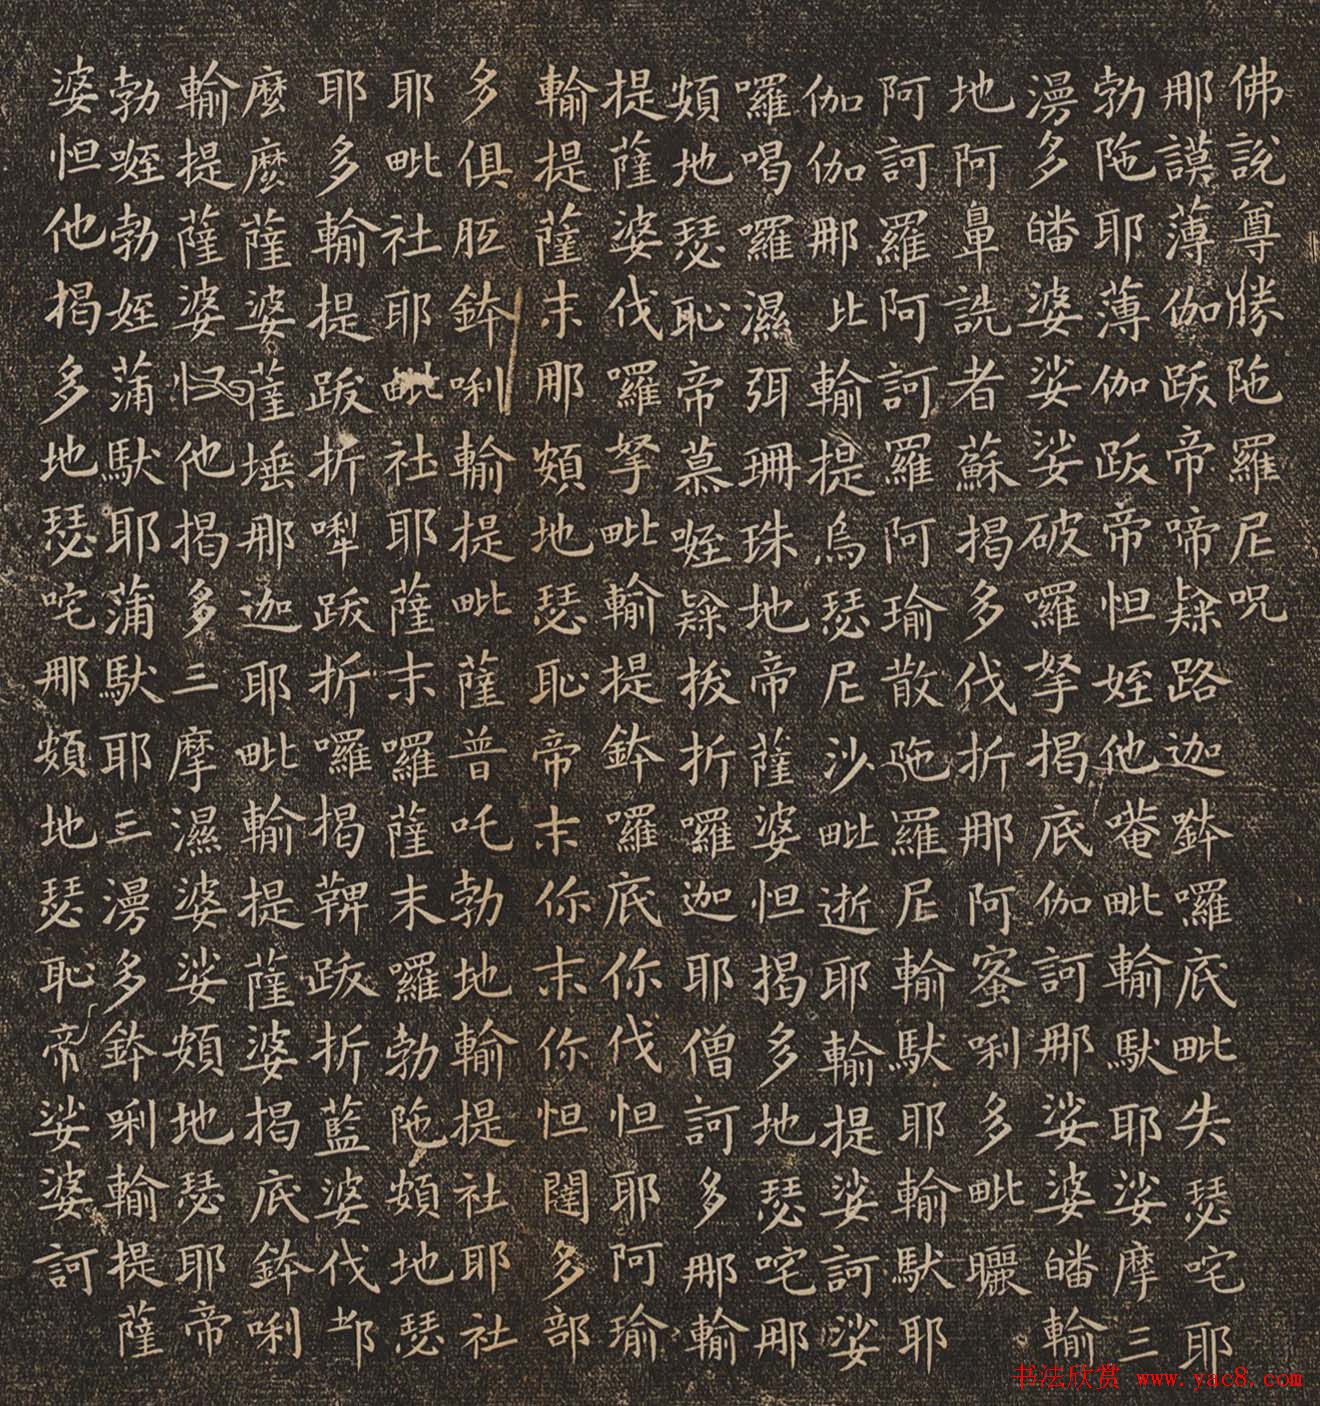 佛說尊勝陁羅尼呪
那謨薄伽跋帝啼隸路迦鉢囉底毗失瑟咤耶
勃陁耶薄伽跋帝怛姪他唵毗輸馱耶娑摩三
漫多皤婆娑娑破囉拏揭底伽訶那娑婆皤輸
地阿鼻詵者蘇揭多伐折那阿蜜唎多毗曬
阿訶羅阿訶羅阿瑜散陁羅尼輸馱耶輸馱耶
伽伽那比輸提烏瑟尼沙毗逝耶輸提娑訶娑
囉喝囉濕弭珊珠地帝薩婆怛揭多地瑟咤那
頞地瑟恥帝慕姪隸拔折囉迦耶僧訶多那輸
提薩婆伐囉拏毗輸提鉢囉底你伐怛耶阿瑜
輸提薩末那頞地瑟恥帝末你末你怛闥多部
多俱胝鉢唎輸提毗薩普吒勃地輸提社耶社
耶毗社耶毗社耶薩末囉薩末囉勃陁頞地瑟
耶多輸提跋折犁跋折囉揭鞞跋折藍婆伐
麼麼薩婆薩埵那迦耶毗輸提薩婆揭底鉢唎
輸提薩婆怛他揭多三摩濕婆娑頞地瑟耶帝
勃姪勃姪蒲馱耶蒲馱耶三漫多鉢唎輸提薩
婆怛他揭多地瑟咤那頞地瑟恥帝娑婆訶
书法欣赏 www.yac8.com